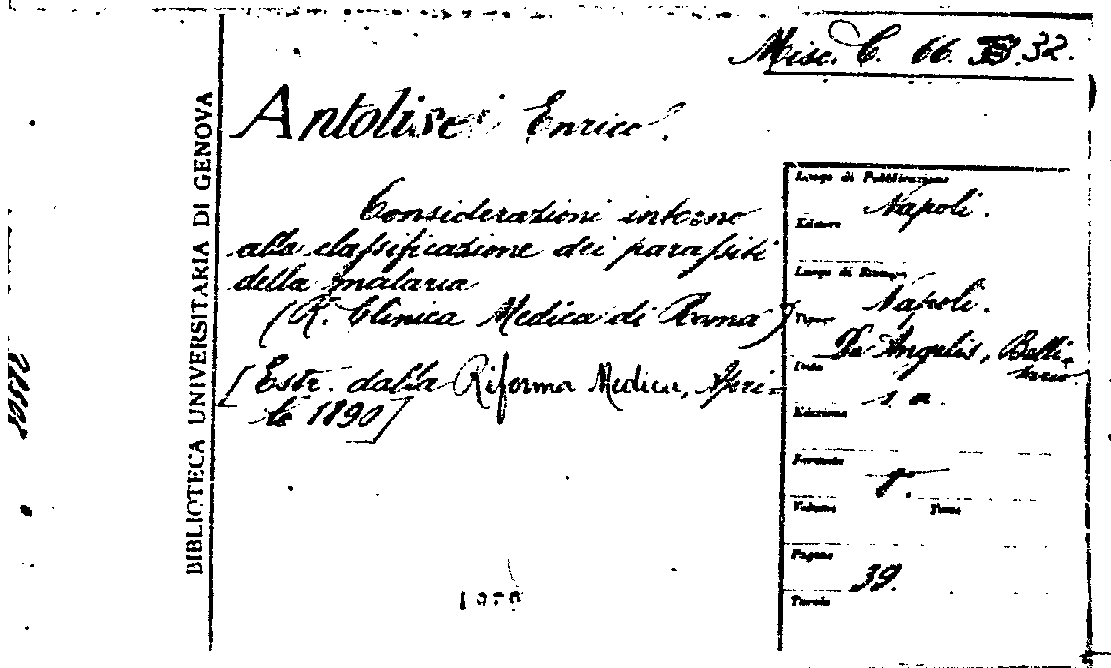 Misc. C. 66. 32.
Antolisei Enrico.
BIBLIOTECA UNIVERSITARIA DI GENOVA
Considerazioni intorno
alla classificazione dei parassiti
della malaria
(R. Clinica Medica di Roma)
[Estr. dalla Riforma Medica, Apri-
le 1890]
Luogo di Pubblicazione
Napoli.
Editore
Luogo di Stampa
Napoli.
Tipogr.
De Angelis, Belli-
sario
Data
s. a.
Edizione
Formato
8º.
Volume Tomo
Pagine
39.
Tavole